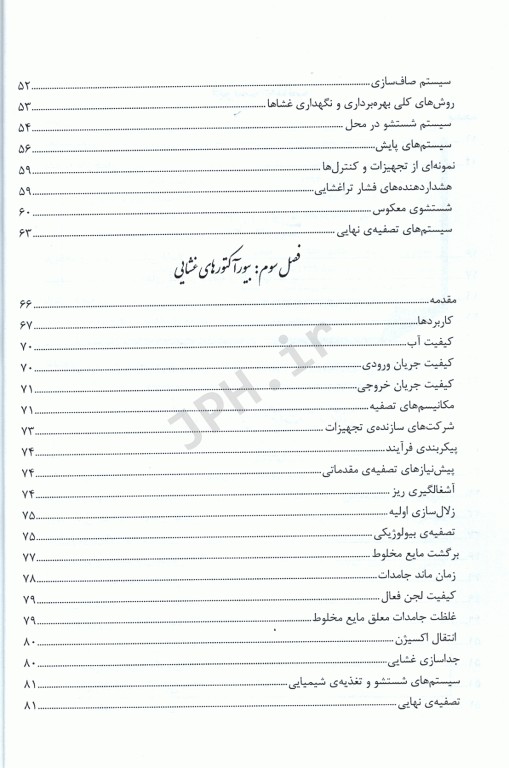 سیستم صاف‌سازی ۵۲
روش‌های کلی بهره‌برداری و نگهداری غشاها ۵۳
سیستم شستشو در محل ۵۴
سیستم‌های پایش ۵۶
نمونه‌ای از تجهیزات و کنترل‌ها ۵۹
هشداردهنده‌های فشار تراغشایی ۵۹
شستشوی معکوس ۶۰
سیستم‌های تصفیه‌ی نهایی ۶۳
فصل سوم: بیورآکتورهای غشایی
مقدمه ۶۶
کاربردها ۶۷
کیفیت آب ۷۰
کیفیت جریان ورودی ۷۰
کیفیت جریان خروجی ۷۱
مکانیسم‌های تصفیه ۷۱
شرکت‌های سازنده‌ی تجهیزات ۷۳
پیکربندی فرآیند ۷۴
پیش‌نیازهای تصفیه‌ی مقدماتی ۷۴
آشغالگیری ریز ۷۴
زلال‌سازی اولیه ۷۵
تصفیه‌ی بیولوژیکی ۷۵
برگشت مایع مخلوط ۷۷
زمان ماند جامدات ۷۸
کیفیت لجن فعال ۷۹
غلظت جامدات معلق مایع مخلوط ۷۹
انتقال اکسیژن ۸۰
جداسازی غشایی ۸۰
سیستم‌های شستشو و تغذیه‌ی شیمیایی ۸۱
تصفیه‌ی نهایی ۸۱
JPH.ir